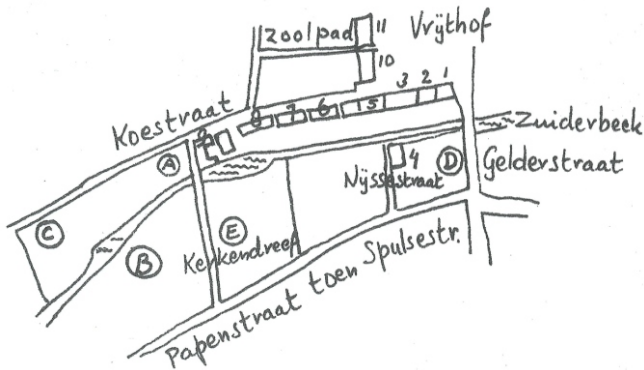 Zoolpad
11
Vrijthof
10
3 2 1
Koestraat
9 8 7 6 15
Zuiderbeek
A
4
D
Gelderstraat
Nijssestraat
C
E
B
Kerkendreef
Papenstraat toen Spulsestr.